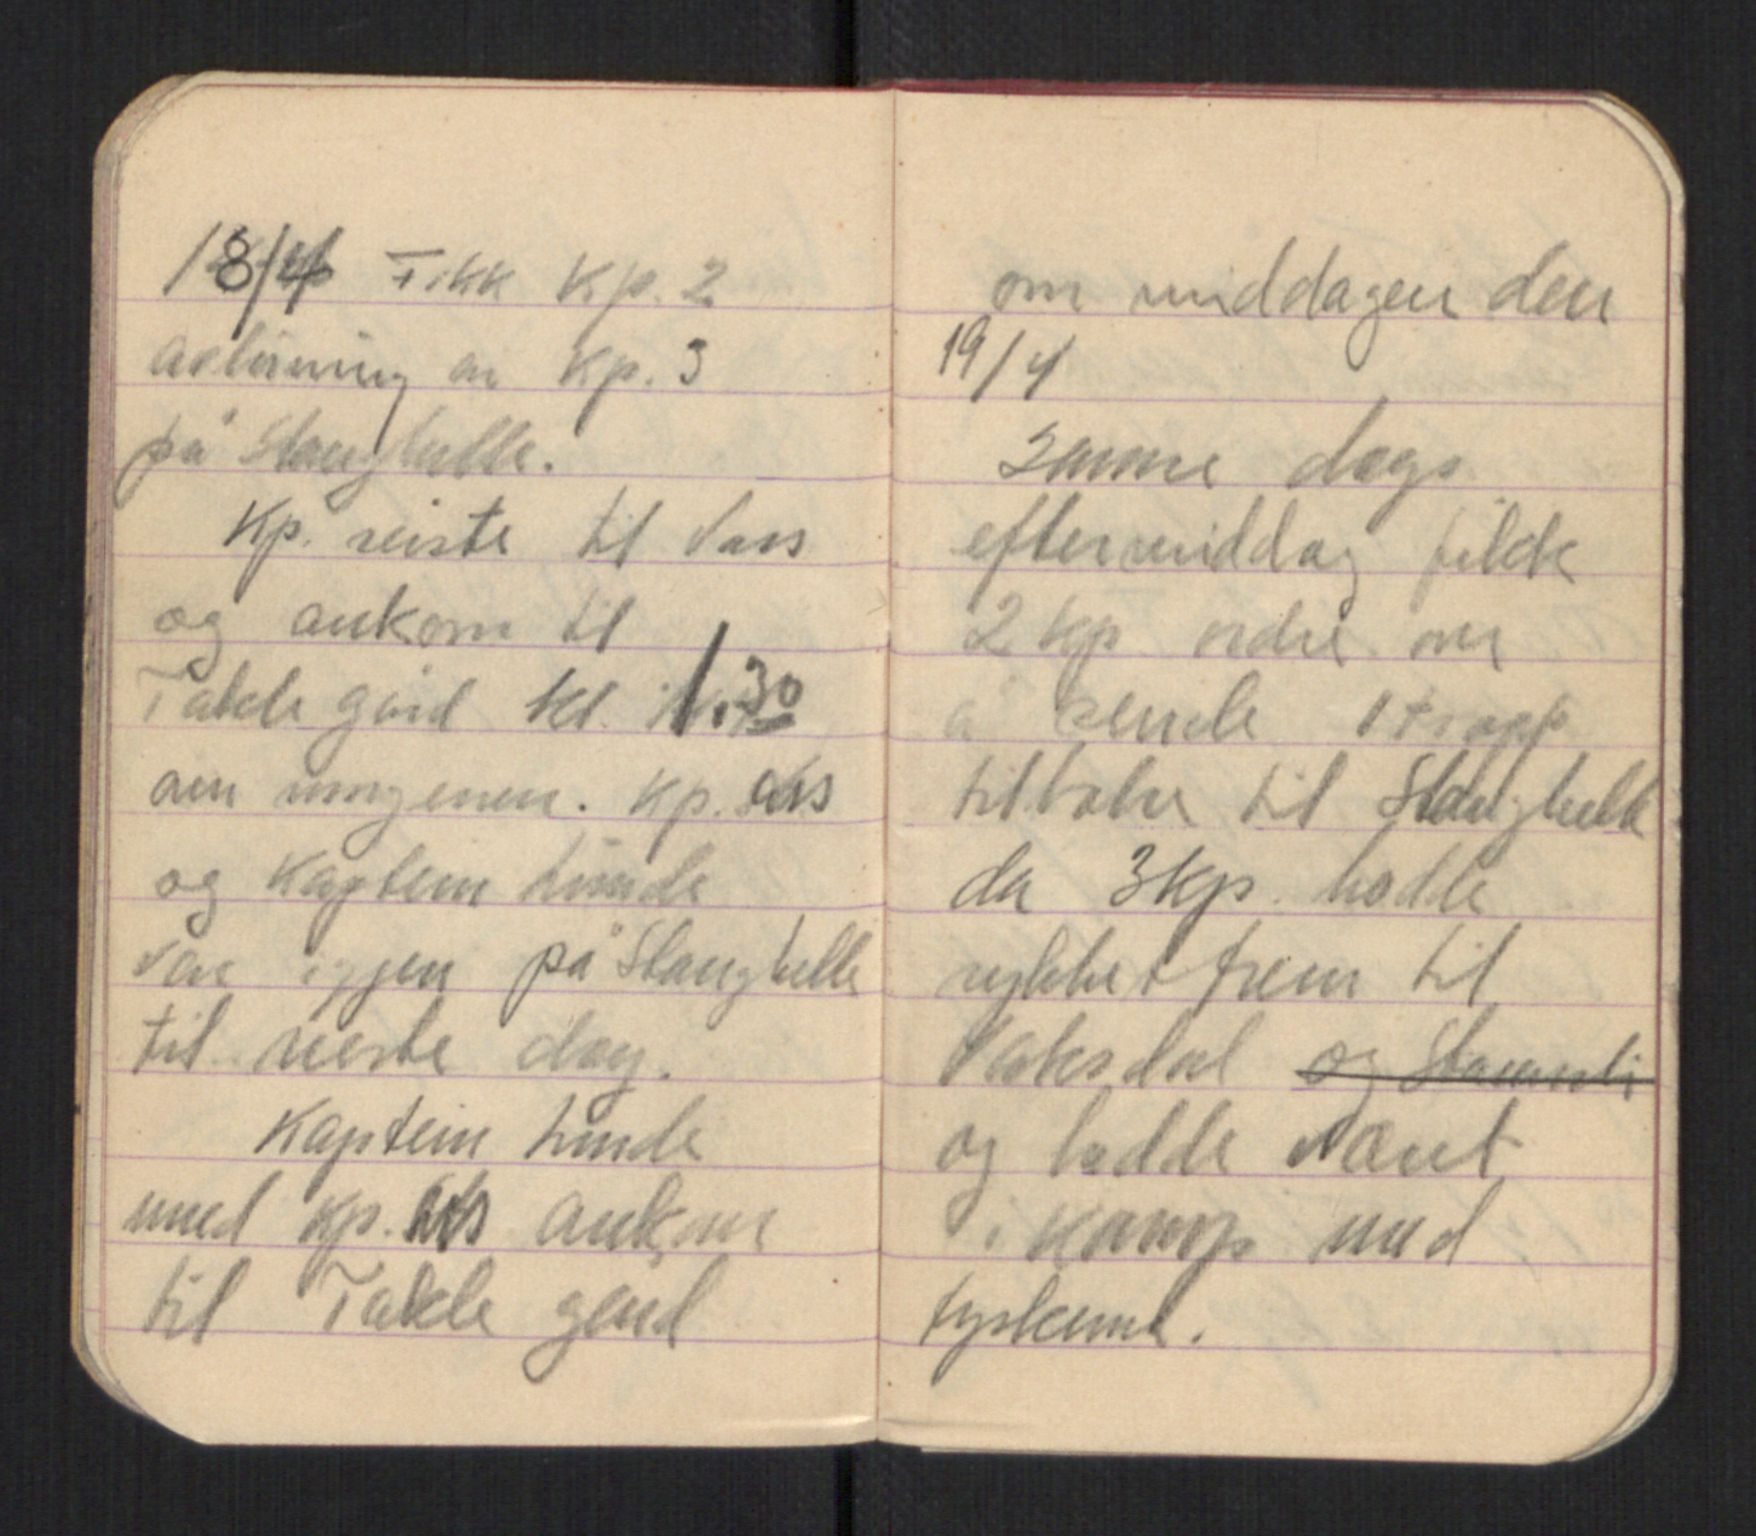 18/4 Fikk Kp. 2
avløsning av Kp. 3
på Stanghelle.
Kp. reiste til Voss
og ankom til
Takle gård kl. 1.30
om morgenen. Kp.
og Kaptein Linde
var igjen på Stanghelle
til neste dag.
Kaptein Linde
med Kp. ankom
til Takle gård
om middagen den
19/4
Samme dags
eftermiddag fikk
2 kp ordre om
å sende 1 tropp
tilbake til Stanghelle
da 3 kp. hadde
rykket frem til
Vaksdal og Stamnes
og hadde været
i kamp med
tyskerne.